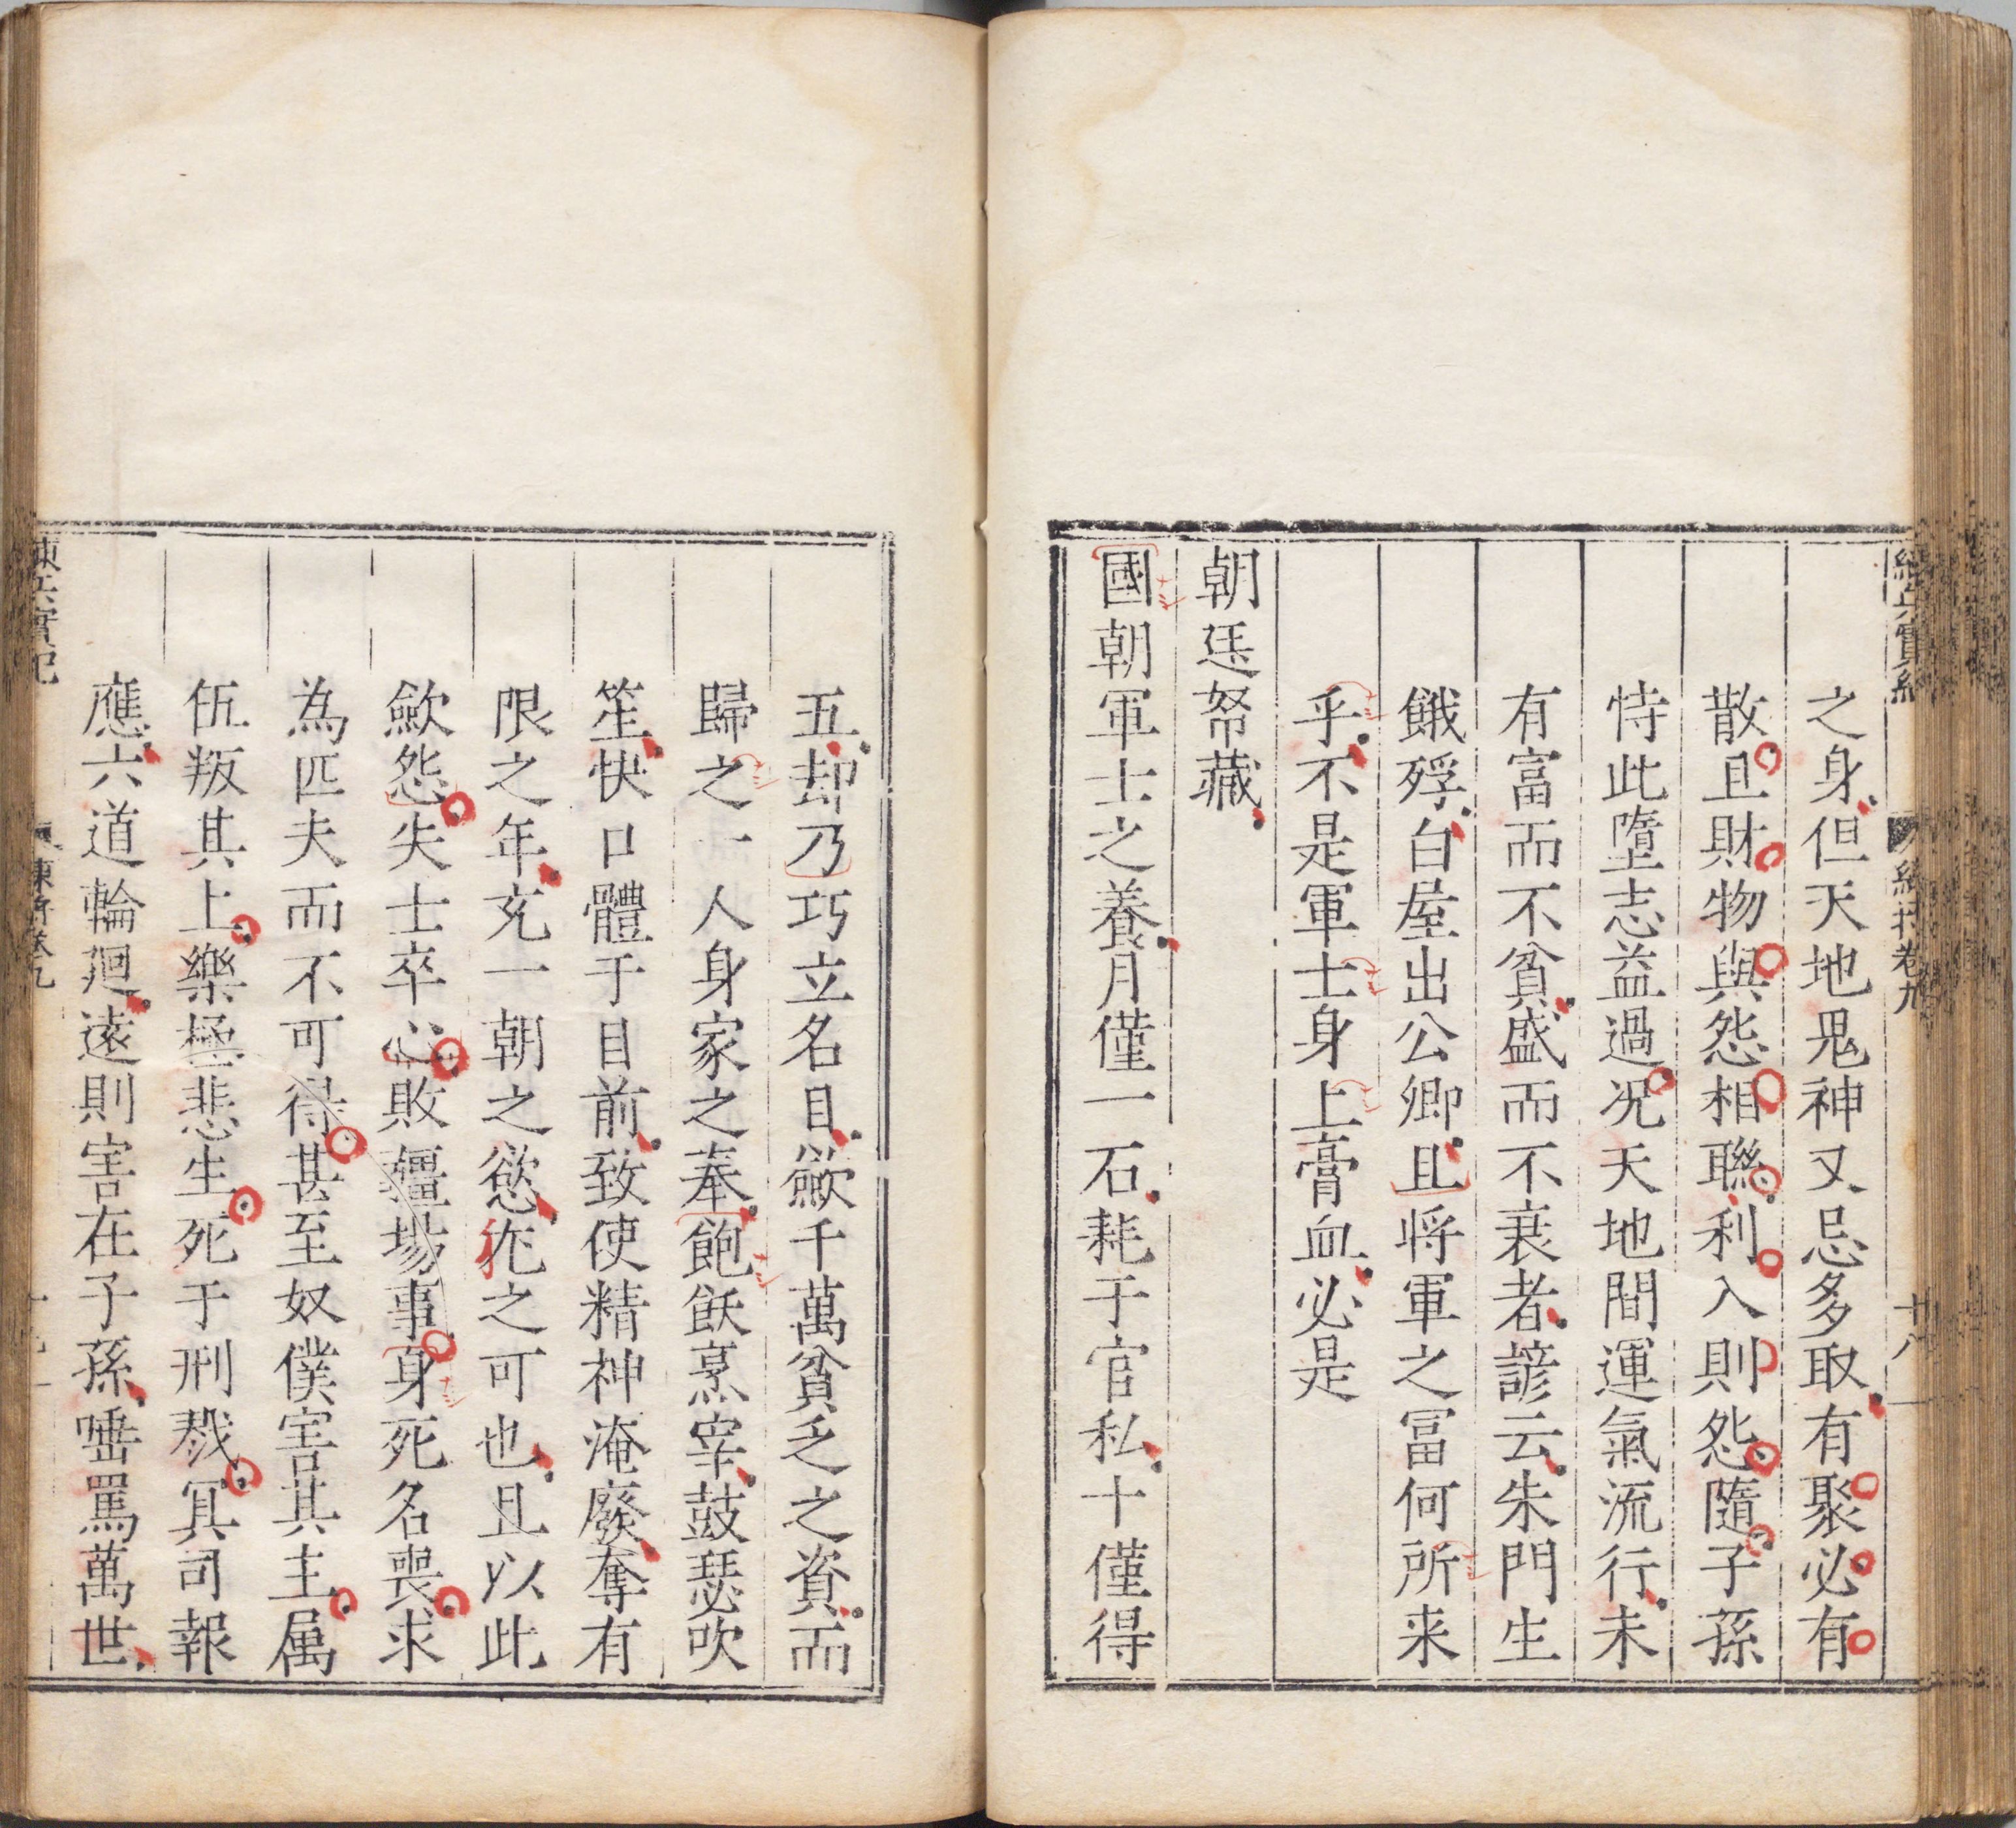 之身但天地鬼神又忌多取有聚必有
散且財物與怨相聯利入則怨隨子孫
恃此墮志益過况天地間運氣流行未
有富而不貧盛而不衰者諺云朱門生
餓殍白屋出公卿且将軍之冨何所来
乎不是軍士身上膏血必是
朝廷帑藏
國朝軍士之養月僅一石耗于官私十僅得
五却乃巧立名目歛千萬貧乏之資而
歸之一人身家之奉飽飫烹宰鼓瑟吹
笙快口體于目前致使精神淹廢奪有
限之年充一朝之慾作之可也且以此
歛怨失士卒心敗疆場事身死名喪求
為匹夫而不可得甚至奴僕害其主属
伍叛其上樂極悲生死于刑戮冥司報
應六道輪廻遠則害在子孫唾罵萬世
練兵實紀
練将卷九
十八